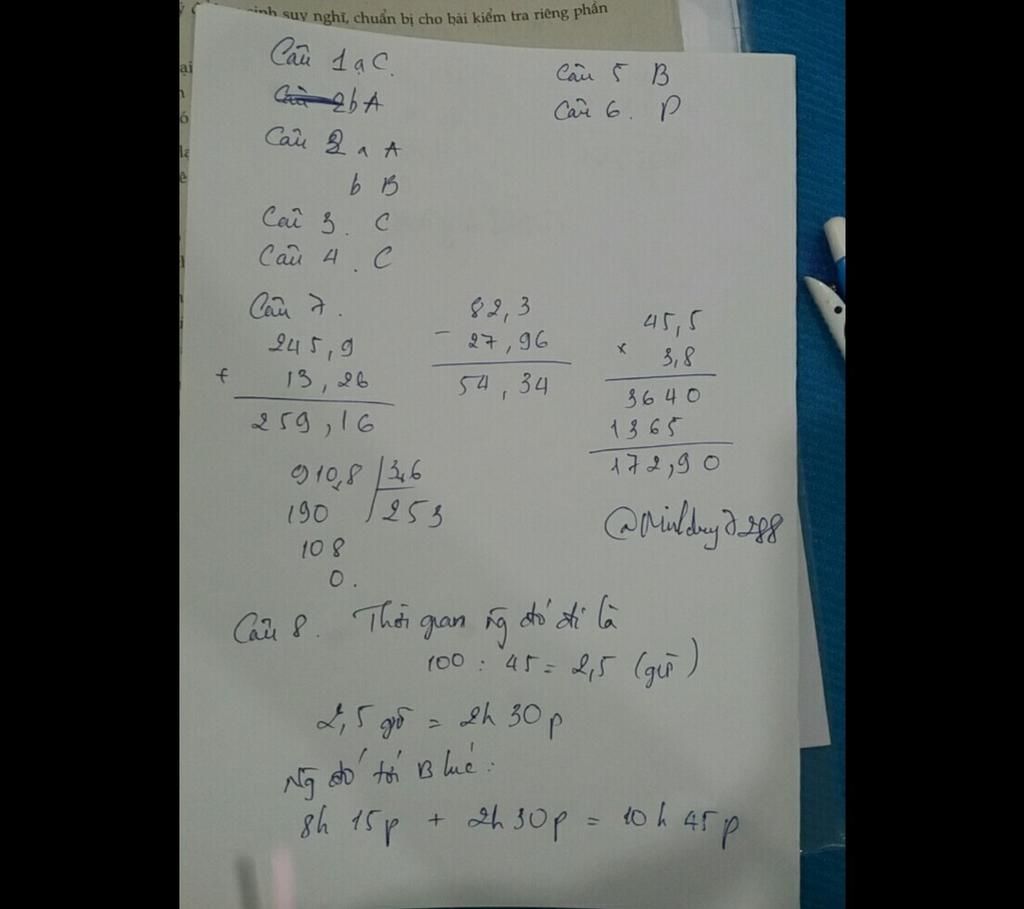 sinh suy nghĩ, chuẩn bị cho bài kiểm tra riêng phần
Câu 1 a C.
b A
Câu 2 a A
b B
Câu 3. C
Câu 4. C
Câu 5 B
Câu 6. D
Câu 7.
245,9
+ 13,26
259,16
82,3
- 27,96
54,34
45,5
x 3,8
3640
1365
172,90
910,8 3,6
190 253
108
0.
Câu 8. Thời gian ng đó đi là
100 : 45 = 2,5 (giờ)
2,5 giờ = 2h 30p
Ng đó tới B lúc:
8h 15p + 2h 30p = 10h 45p